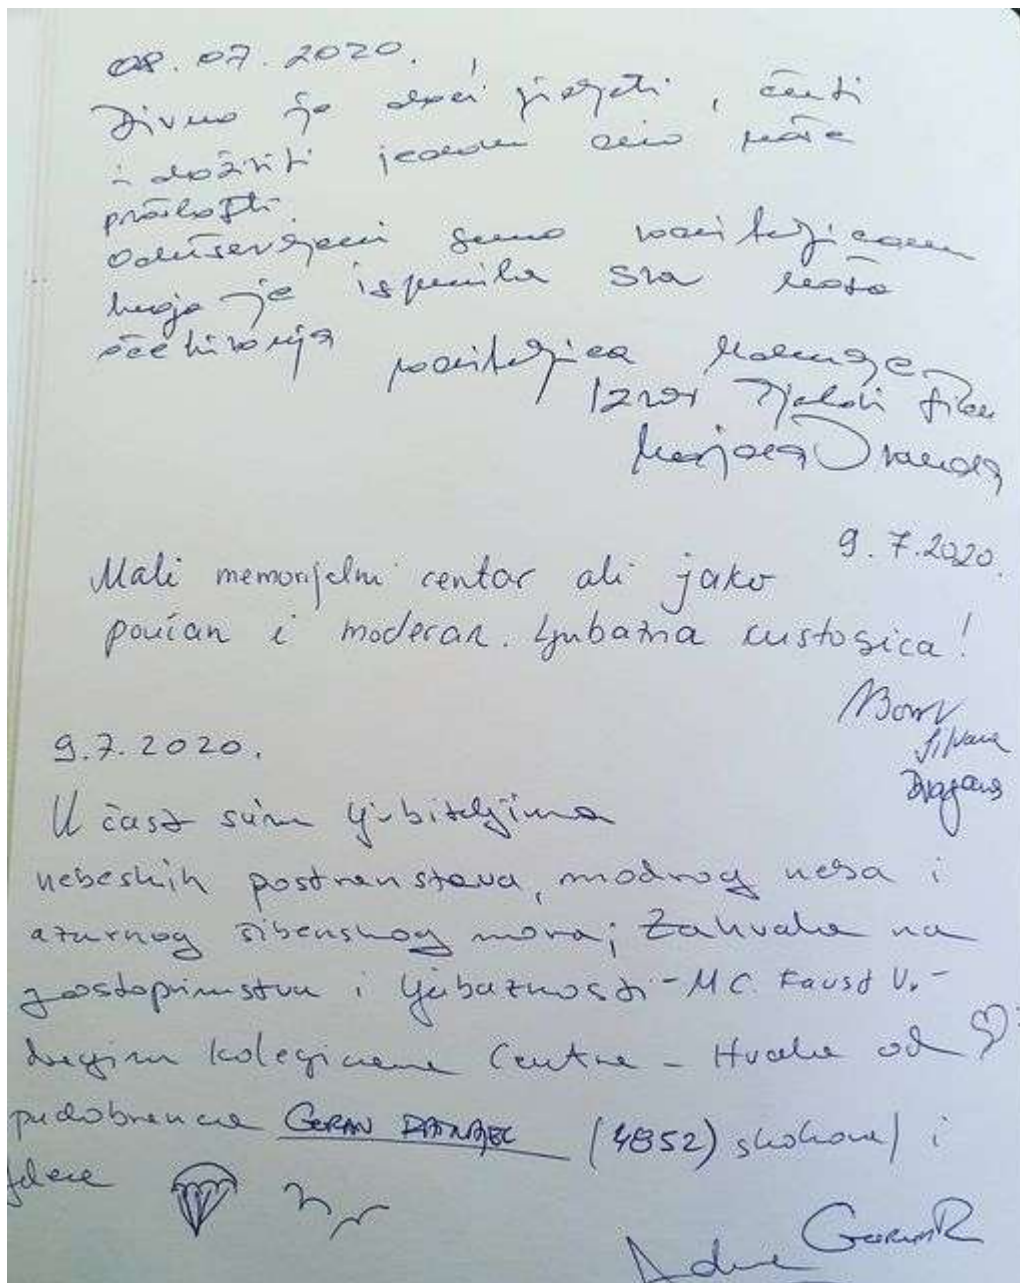 08.07.2020.
Divno je doći vidjeti, čuti
i doživiti jedan dio naše
prošlosti.
Oduševljeni smo voditeljicom
koja je ispunila sva naša
očekivanja
voditeljica
Izvor
9.7.2020.
Mali memorijalni centar ali jako
poučan i moderan. Ljubazna kustosica!
Dragana
9.7.2020.
U čast svim ljubiteljima
nebeskih postranstava, modrog neba i
azurnog šibenskog mora; Zahvala na
gostoprimstvu i ljubaznosti - MC. Faust V. -
dragim kolegicama Centra - Hvala od ♡
padobranca GORAN (4852) skokova/ i